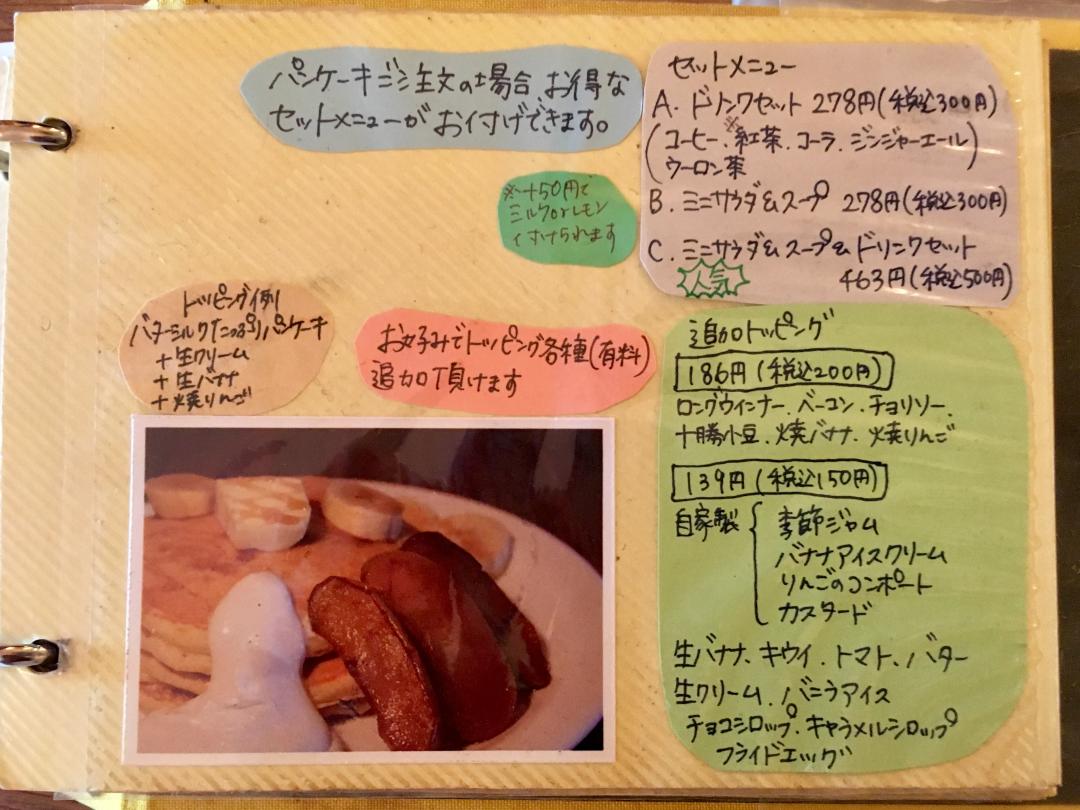 パンケーキご注文の場合、お得な
セットメニューがお付けできます。
セットメニュー
A. ドリンクセット 278円(税込300円)
(コーヒー、※紅茶、コーラ、ジンジャーエール)
ウーロン茶
B. ミニサラダ&スープ 278円(税込300円)
C. ミニサラダ&スープ&ドリンクセット
人気 463円(税込500円)
※+50円で
ミルクorレモン
付けられます
トッピング例
バターミルクたっぷりパンケーキ
+生クリーム
+生バナナ
+焼りんご
お好みでトッピング各種(有料)
追加頂けます
追加トッピング
186円(税込200円)
ロングウィンナー、ベーコン、チョリソー、
十勝小豆、焼バナナ、焼りんご
139円(税込150円)
自家製 季節ジャム
バナナアイスクリーム
りんごのコンポート
カスタード
生バナナ、キウイ、トマト、バター
生クリーム、バニラアイス
チョコシロップ、キャラメルシロップ
フライドエッグ